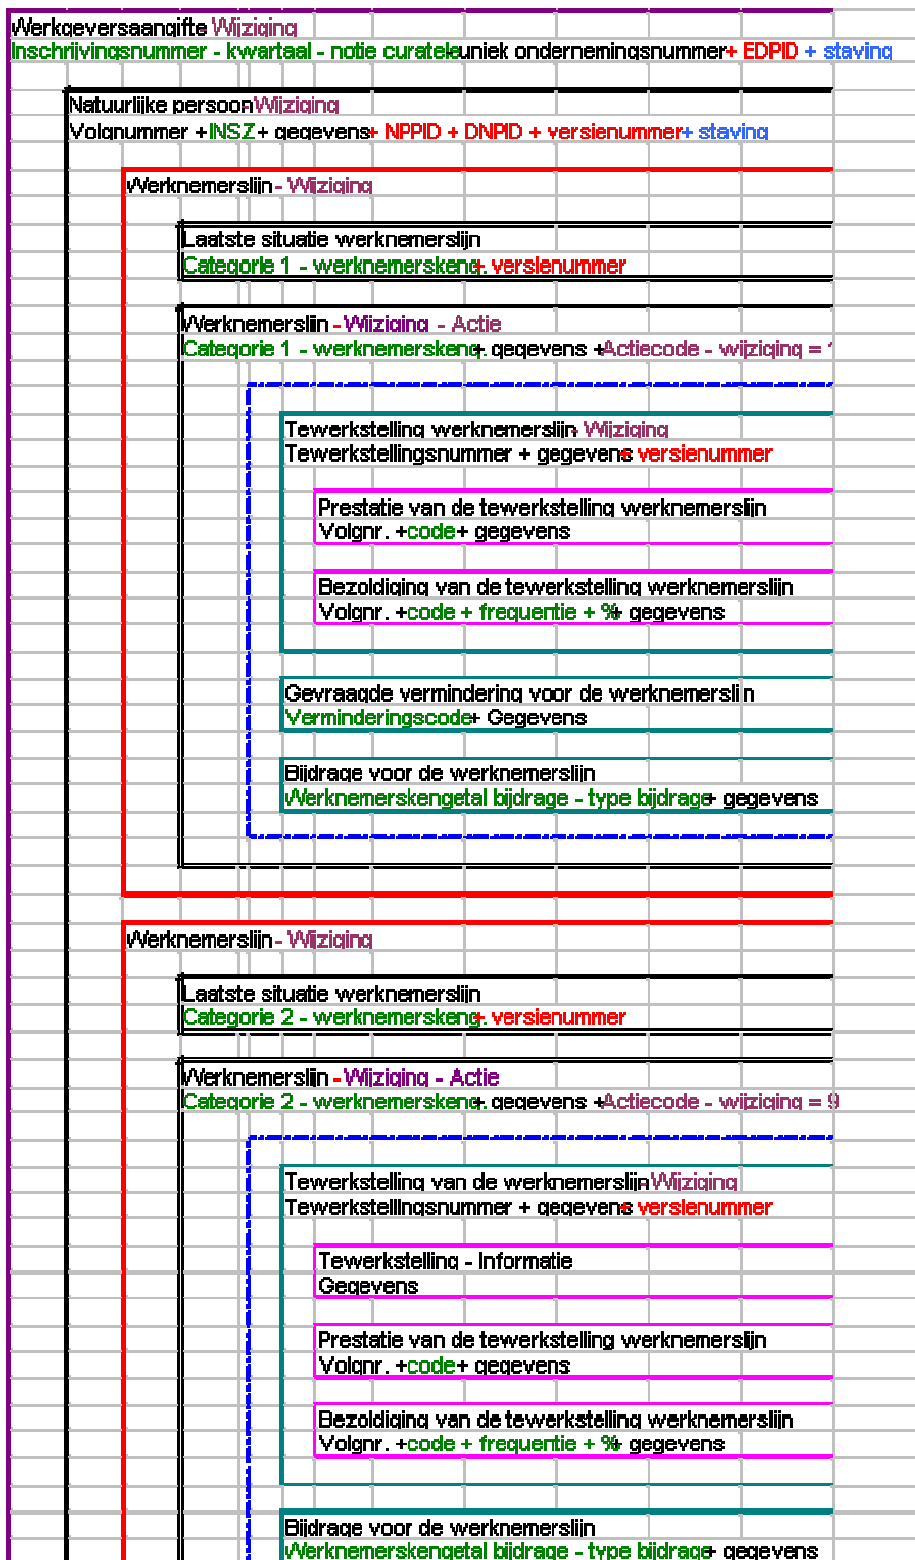 Werkgeversaangifte Wijziging
Inschrijvingsnummer - kwartaal - notie curatele uniek ondernemingsnummer + EDPID + staving
Natuurlijke persoon Wijziging
Volgnummer + INSZ + gegevens + NPPID + DNPID + versienummer + staving
Werknemerslijn - Wijziging
Laatste situatie werknemerslijn
Categorie 1 - werknemerskeng. + versienummer
Werknemerslijn - Wijziging - Actie
Categorie 1 - werknemerskeng. + gegevens + Actiecode - wijziging =
Tewerkstelling werknemerslijn - Wijziging
Tewerkstellingsnummer + gegevens + versienummer
Prestatie van de tewerkstelling werknemerslijn
Volgnr. + code + gegevens
Bezoldiging van de tewerkstelling werknemerslijn
Volgnr. + code + frequentie + % + gegevens
Gevraagde vermindering voor de werknemerslijn
Verminderingscode + Gegevens
Bijdrage voor de werknemerslijn
Werknemerskengetal bijdrage - type bijdrage + gegevens
Werknemerslijn - Wijziging
Laatste situatie werknemerslijn
Categorie 2 - werknemerskeng. + versienummer
Werknemerslijn - Wijziging - Actie
Categorie 2 - werknemerskeng. + gegevens + Actiecode - wijziging = 9
Tewerkstelling van de werknemerslijn Wijziging
Tewerkstellingsnummer + gegevens + versienummer
Tewerkstelling - Informatie
Gegevens
Prestatie van de tewerkstelling werknemerslijn
Volgnr. + code + gegevens
Bezoldiging van de tewerkstelling werknemerslijn
Volgnr. + code + frequentie + % + gegevens
Bijdrage voor de werknemerslijn
Werknemerskengetal bijdrage - type bijdrage + gegevens